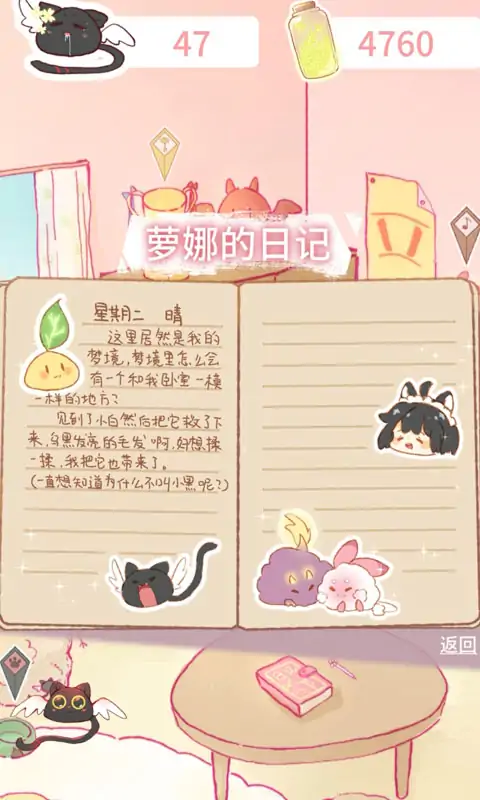 47
4760
萝娜的日记
星期二 晴
这里居然是我的
梦境，梦境里怎么会
有一个和我卧室一模
一样的地方？
见到了小白然后把它救了下
来，乌黑发亮的毛发啊，好想揉
一揉，我把它也带来了。
(一直想知道为什么不叫小黑呢？)
返回